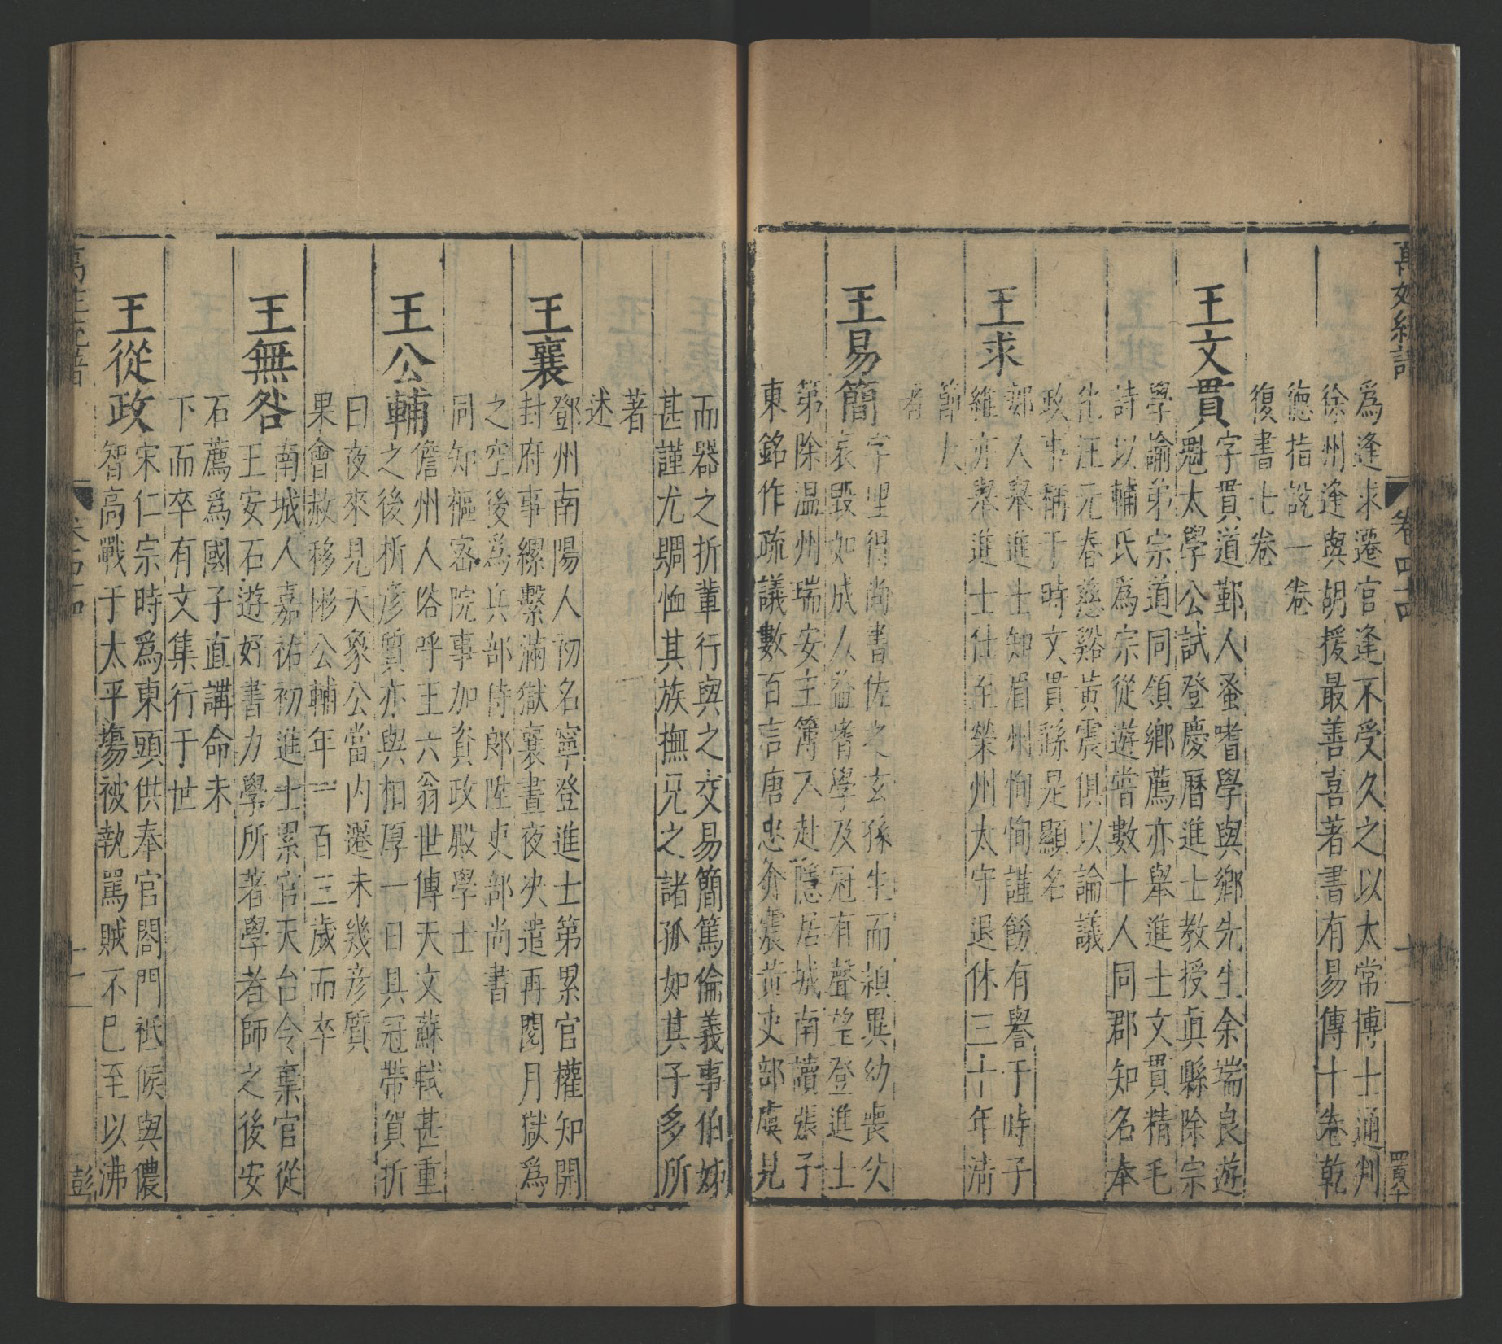 萬姓統譜
卷四十四
為逢求遷官逢不受久之以太常博士通判
徐州逢與胡援最善喜著書有易傳十卷乾
德指說一卷
復書七卷
王文貫字貫道鄞人蚤嗜學與鄉先生余端良遊
魁太學公試登慶曆進士教授真縣除宗
學諭弟宗道同領鄉薦亦舉進士文貫精毛
詩以輔氏為宗從遊嘗數十人同郡知名本
化汪元春慈谿黃震俱以論議
政事稱于時文貫繇是顯名
王求
郊人舉進士知眉州恂恂謹飭有譽于時子
維亦舉進士仕至榮州太守退休三十年清
節大
著
王易簡字里得尚書佐之玄孫生而穎異幼喪父
哀毀如成人益嗜學及冠有聲望登進士
第除温州瑞安主簿不赴隱居城南讀張子
東銘作疏議數百言唐忠介震黃吏部虞見
而器之折輩行與之交易簡篤倫義事伯姊
甚謹尤賙恤其族撫兄之諸孤如其子多所
著
述
王襄鄧州南陽人初名寧登進士第累官權知開
封府事縲繫滿獄襄晝夜決遣再閱月獄為
之空後為兵部侍郎陞吏部尚書
同知樞密院事加資政殿學士
王公輔儋州人俗呼王六翁世傳天文蘇軾甚重
之後折彥質亦與相厚一日具冠帶賀折
曰夜來見天象公當内遷未幾彥質
果會赦移郴公輔年一百三歲而卒
王無咎南城人嘉祐初進士累官天台令棄官從
王安石遊好書力學所著學者師之後安
石薦為國子直講命未
下而卒有文集行于世
王從政宋仁宗時為東頭供奉官閤門祗候與儂
智高戰于太平塲被執罵賊不已至以沸